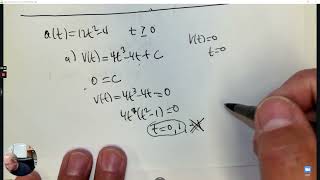 a(t)=12t²-4   t ≥ 0
a) v(t)=4t³-4t+C   v(t)=0
t=0
0=C
v(t)=4t³-4t=0
4t(t²-1)=0
t=0,1